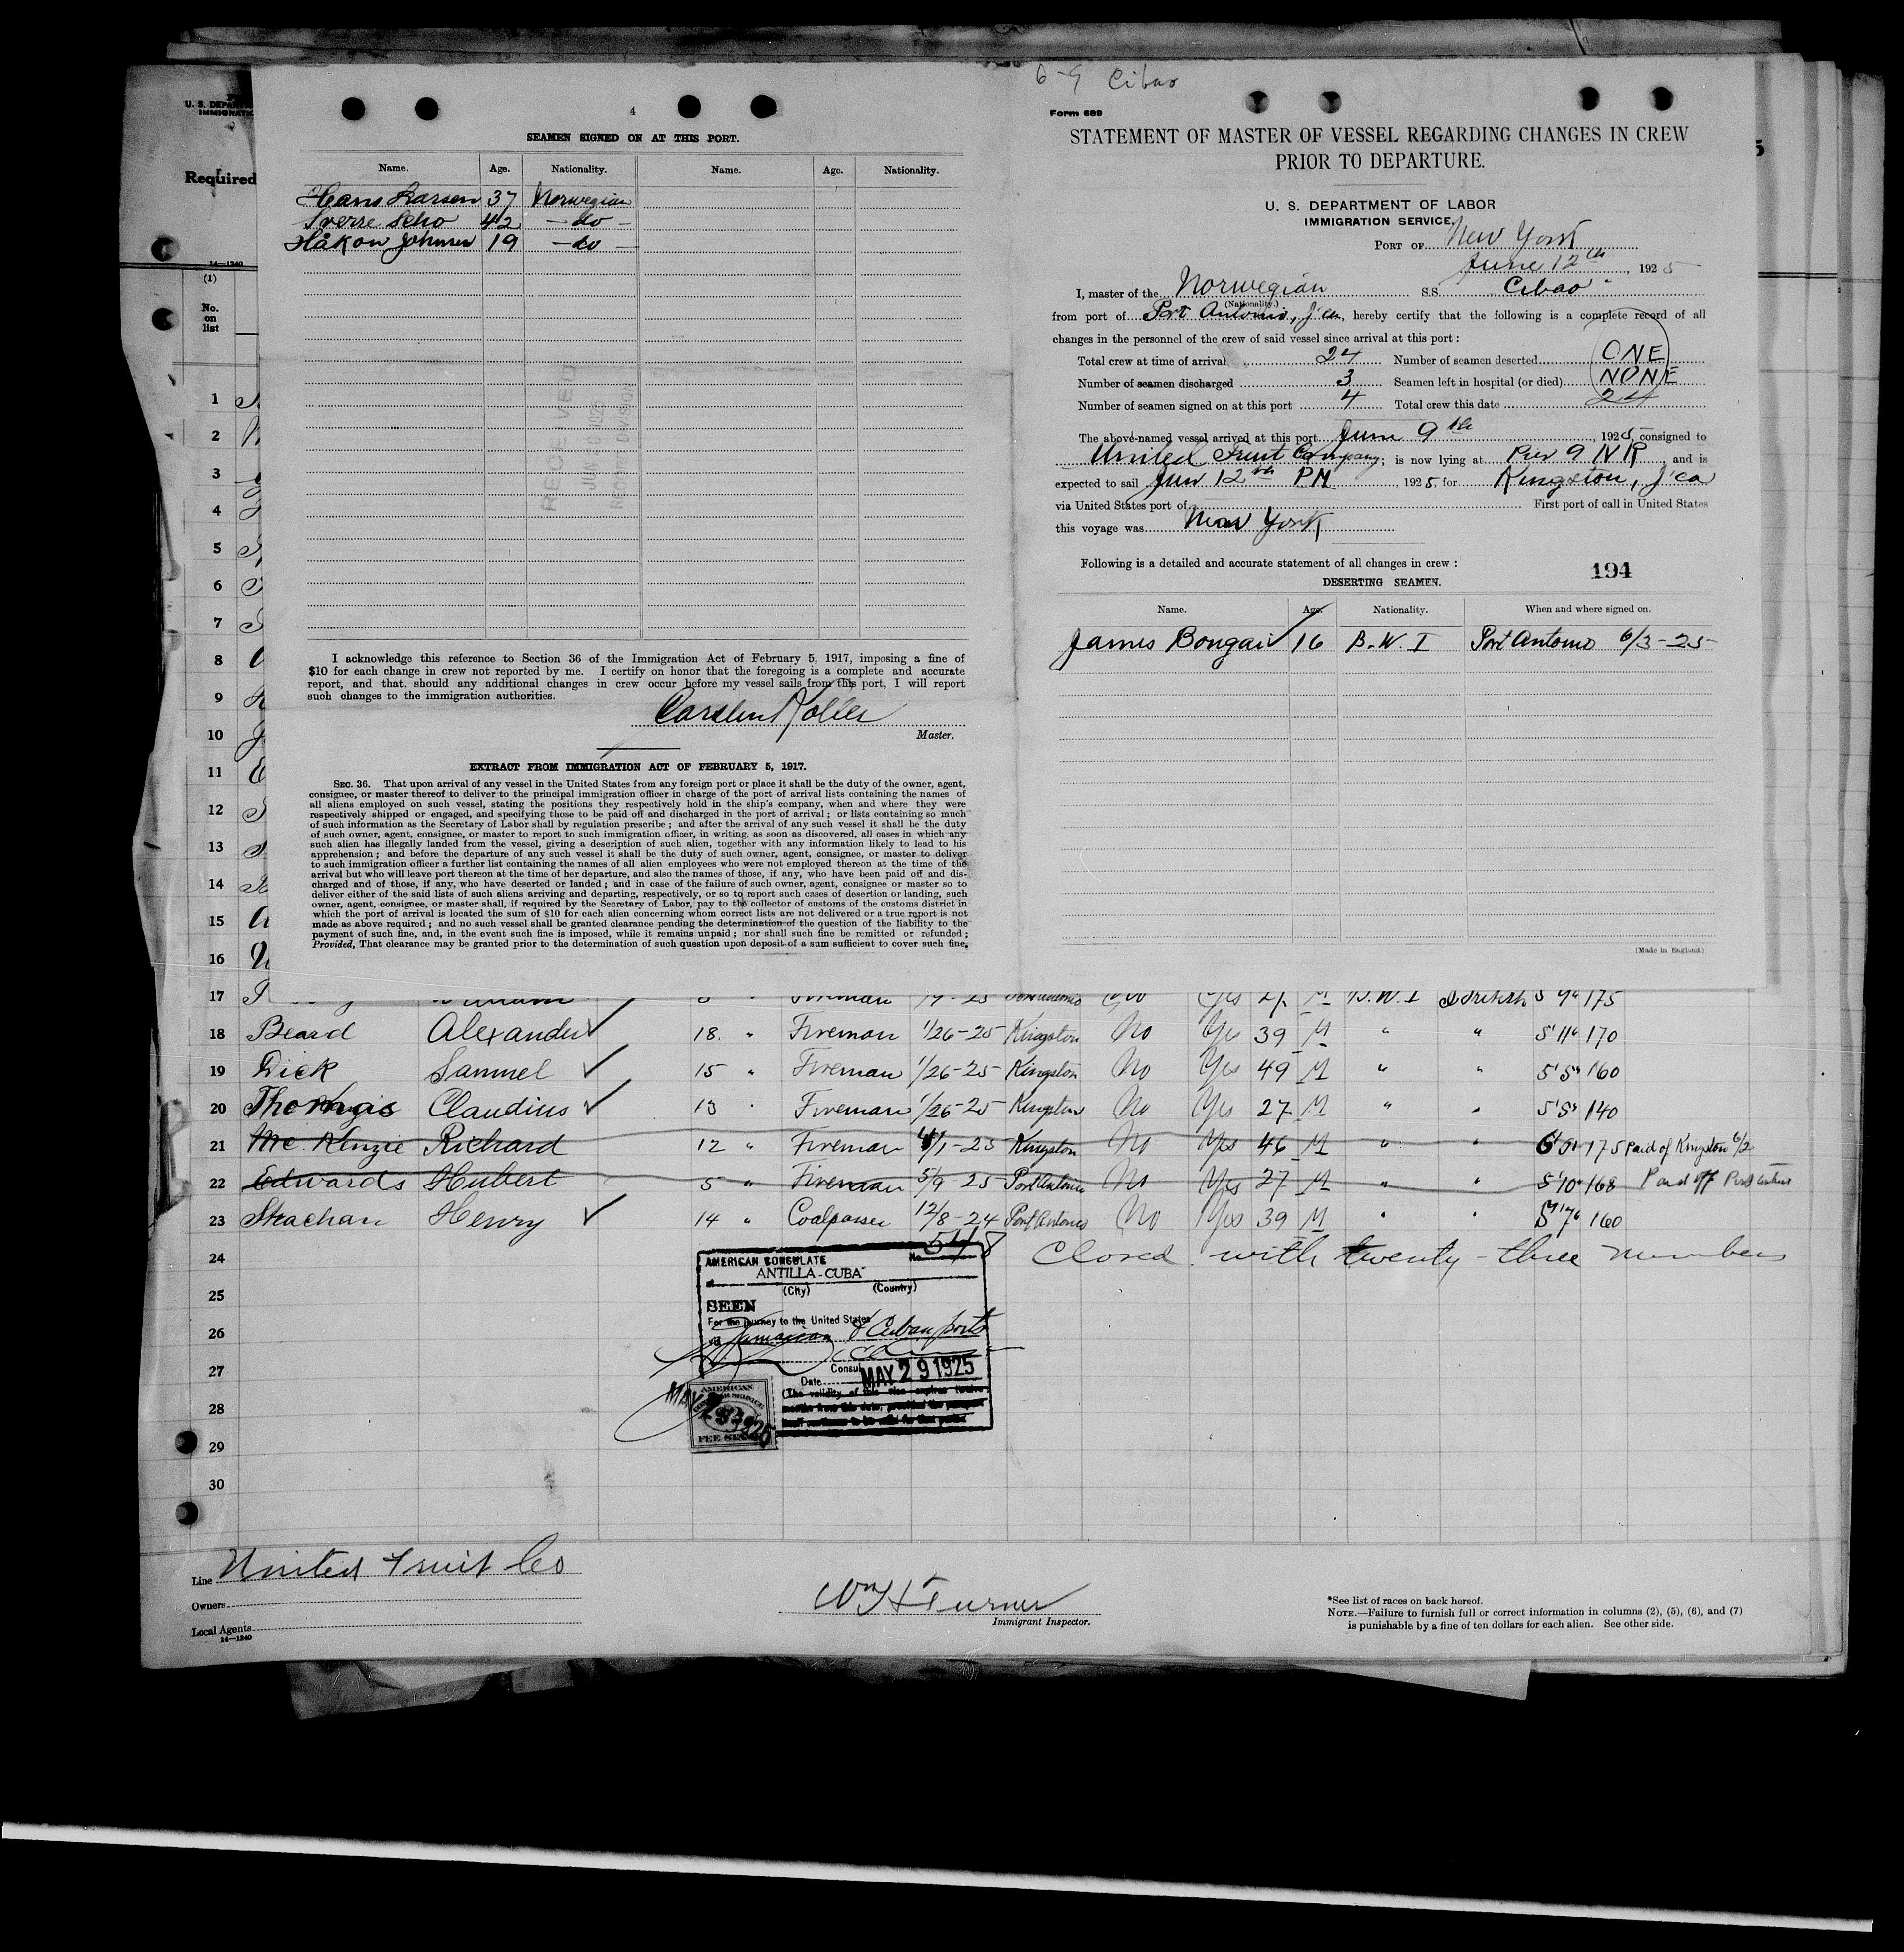 6-9 Cibao
4
SEAMEN SIGNED ON AT THIS PORT.
Name. Age. Nationality. Name. Age. Nationality.
Hans Larsen 37 Norwegian
Sverre 42 - do -
Håkon Johnsen 19 - do -
RECEIVED
JUN 1925
RECORD DIVISION
I acknowledge this reference to Section 36 of the Immigration Act of February 5, 1917, imposing a fine of
$10 for each change in crew not reported by me. I certify on honor that the foregoing is a complete and accurate
report, and that, should any additional changes in crew occur before my vessel sails from this port, I will report
such changes to the immigration authorities.
Master.
EXTRACT FROM IMMIGRATION ACT OF FEBRUARY 5, 1917.
SEC. 36. That upon arrival of any vessel in the United States from any foreign port or place it shall be the duty of the owner, agent,
consignee, or master thereof to deliver to the principal immigration officer in charge of the port of arrival lists containing the names of
all aliens employed on such vessel, stating the positions they respectively hold in the ship's company, when and where they were
respectively shipped or engaged, and specifying those to be paid off and discharged in the port of arrival; or lists containing so much
of such information as the Secretary of Labor shall by regulation prescribe; and after the arrival of any such vessel it shall be the duty
of such owner, agent, consignee, or master to report to such immigration officer, in writing, as soon as discovered, all cases in which any
such alien has illegally landed from the vessel, giving a description of such alien, together with any information likely to lead to his
apprehension; and before the departure of any such vessel it shall be the duty of such owner, agent, consignee, or master to deliver
to such immigration officer a further list containing the names of all alien employees who were not employed thereon at the time of the
arrival but who will leave port thereon at the time of her departure, and also the names of those, if any, who have been paid off and dis-
charged and of those, if any, who have deserted or landed; and in case of the failure of such owner, agent, consignee or master so to
deliver either of the said lists of such aliens arriving and departing, respectively, or so to report such cases of desertion or landing, such
owner, agent, consignee, or master shall, if required by the Secretary of Labor, pay to the collector of customs of the customs district in
which the port of arrival is located the sum of $10 for each alien concerning whom correct lists are not delivered or a true report is not
made as above required; and no such vessel shall be granted clearance pending the determination of the question of the liability to the
payment of such fine, and, in the event such fine is imposed, while it remains unpaid; nor shall such fine be remitted or refunded;
Provided, That clearance may be granted prior to the determination of such question upon deposit of a sum sufficient to cover such fine,
Form 689
STATEMENT OF MASTER OF VESSEL REGARDING CHANGES IN CREW
PRIOR TO DEPARTURE.
U. S. DEPARTMENT OF LABOR
IMMIGRATION SERVICE.
PORT OF New York
June 12th, 1925
I, master of the Norwegian S.S. Cibao
(Nationality.)
from port of Port Antonio, J'ca, hereby certify that the following is a complete record of all
changes in the personnel of the crew of said vessel since arrival at this port:
Total crew at time of arrival 24 Number of seamen deserted ONE
Number of seamen discharged 3 Seamen left in hospital (or died) NONE
Number of seamen signed on at this port 4 Total crew this date 24
The above-named vessel arrived at this port June 9th, 1925, consigned to
United Fruit Company; is now lying at Pier 9 NR, and is
expected to sail Jun 12th PM, 1925, for Kingston, J'ca
via United States port of First port of call in United States
this voyage was New York
Following is a detailed and accurate statement of all changes in crew:
194
DESERTING SEAMEN.
Name. Age. Nationality. When and where signed on.
James 16 B.W.I Port Antonio 6/3-25
(Made in England.)
U. S. DEPAR
IMMIGRATIO
Required
14-1240
(1)
No.
on
list
1
2
3
4
5
6
7
8
9
10
11
12
13
14
15
16
17 William Fireman Yes M B.W.I British 175
18 Beard Alexander 18 " Fireman 1/26-25 Kingston No Yes 39 M " " 5'11" 170
19 Dick Samuel 15 " Fireman 1/26-25 Kingston No Yes 49 M " " 5'5" 160
20 Thomas Claudius 13 " Fireman 1/26-25 Kingston No Yes 27 M " " 5'5" 140
21 Mc Kenzie Richard 12 " Fireman Kingston No Yes 46 M " " 175 Paid of Kingston 6/2
22 Edwards Hubert 5 " Fireman 5/9-25 Port Antonio No Yes 27 M " " 5'10" 168 Paid off Port Antonio
23 Strachan Henry 14 " Coalpasser 12/8-24 Port Antonio No Yes 39 M " " 5'7" 160
24 Closed with twenty-three members
25
26
27
28
29
30
AMERICAN CONSULATE No. 548
at ANTILLA-CUBA
(City) (Country)
SEEN
For the journey to the United States
via Jamaican & Cuban ports
Consul
Date MAY 29 1925
(The validity of this visa expires twelve
months from this date, provided the passport
itself continues to be valid for that period
AMERICAN
FEE STAMP
Line United Fruit Co
Owners
Local Agents
14-1240
Wm H Turner
Immigrant Inspector.
*See list of races on back hereof.
NOTE.—Failure to furnish full or correct information in columns (2), (5), (6), and (7)
is punishable by a fine of ten dollars for each alien. See other side.